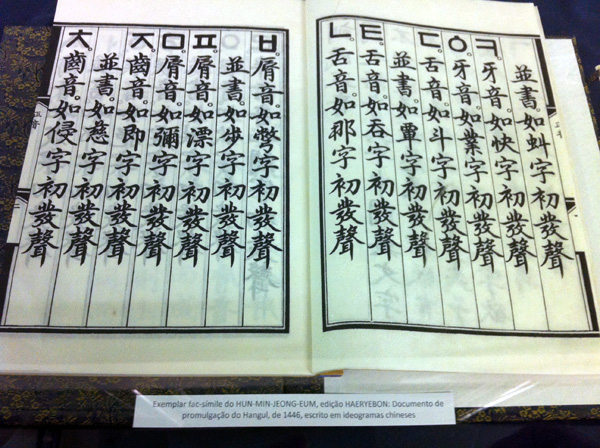 並書。如虯字初發聲
ㅋ。牙音。如快字初發聲
ㆁ。牙音。如業字初發聲
ㄷ。舌音。如斗字初發聲
並書。如覃字初發聲
ㅌ。舌音。如呑字初發聲
ㄴ。舌音。如那字初發聲
ㅂ。脣音。如彆字初發聲
並書。如步字初發聲
ㅍ。脣音。如漂字初發聲
ㅁ。脣音。如彌字初發聲
ㅈ。齒音。如即字初發聲
並書。如慈字初發聲
ㅊ。齒音。如侵字初發聲
Exemplar fac-símile do HUN-MIN-JEONG-EUM, edição HAERYEBON: Documento de
promulgação do Hangul, de 1446, escrito em ideogramas chineses